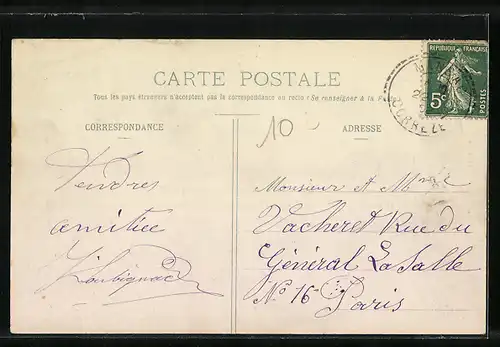 CARTE POSTALE
Tous les pays étrangers n'acceptent pas la correspondance au recto (Se renseigner à la
CORRESPONDANCE
ADRESSE
10
REPUBLIQUE FRANÇAISE
5c
POSTES
CORREZE
Tendres
amitiée
Monsieur et Mme
Vacheret Rue du
Général LaSalle
No 16 Paris